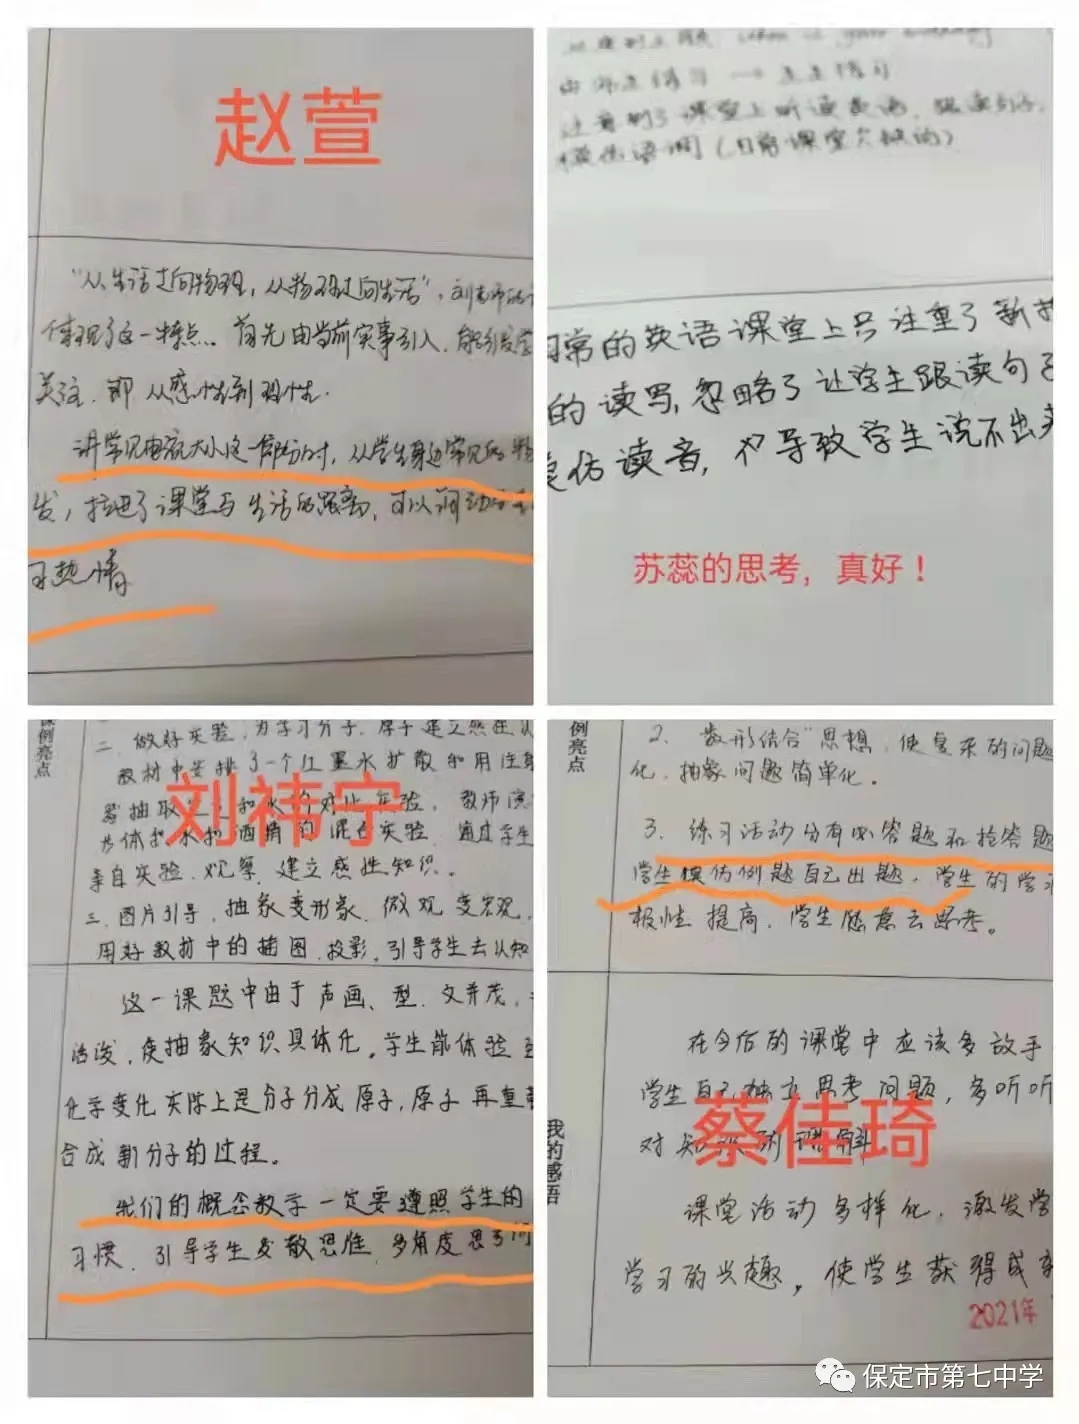 赵萱
“从生活走向物理，从物理走向生活”，刘老师的
体现了这一特点。首先由当前实事引入，能引发学
关注，即从感性到理性.
讲常见电流大小这一部分时，从学生身边常见的
发，拉近了课堂与生活的距离，可以调动学生
习热情
由师生练习 → 生生练习
注意到了课堂上听读英语，跟读句子，
模仿语调（日常课堂欠缺的）
常的英语课堂上只注重了新
的读写，忽略了让学生跟读句子
模仿读音，也导致学生说不出
苏蕊的思考，真好！
课例亮点
二．做好实验，为学习分子．原子建立感性认
教材中安排了一个红墨水扩散和用注射
器抽取 和水的对比实验，教师演
水和酒精的混合实验．通过学生
亲自实验．观察，建立感性知识。
刘祎宁
三．图片引导，抽象变形象．微观变宏观，
用好教材中的插图．投影，引导学生去认知
这一课题中由于声画、型．文并茂，
活泼，使抽象知识具体化。学生能体验
化学变化实际上是分子分成原子，原子再重新
合成新分子的过程。
我们的概念教学一定要遵照学生的
习惯．引导学生发散思维．多角度思考问
例亮点
2．数形结合”思想，使复杂的问题
化，抽象问题简单化。
3．练习活动分有必答题和抢答题
学生模仿例题自己出题，学生的学习
极性提高，学生愿意去思考。
我的感悟
在今后的课堂中应该多放手
学生自己独立思考问题，多听听
对知识的理解
蔡佳琦
课堂活动多样化，激发学
学习的兴趣，使学生获得成
2021年
保定市第七中学